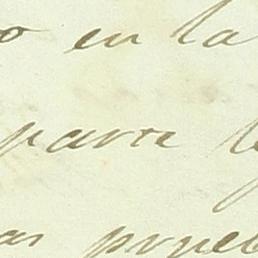 o en la
para l
as prueb